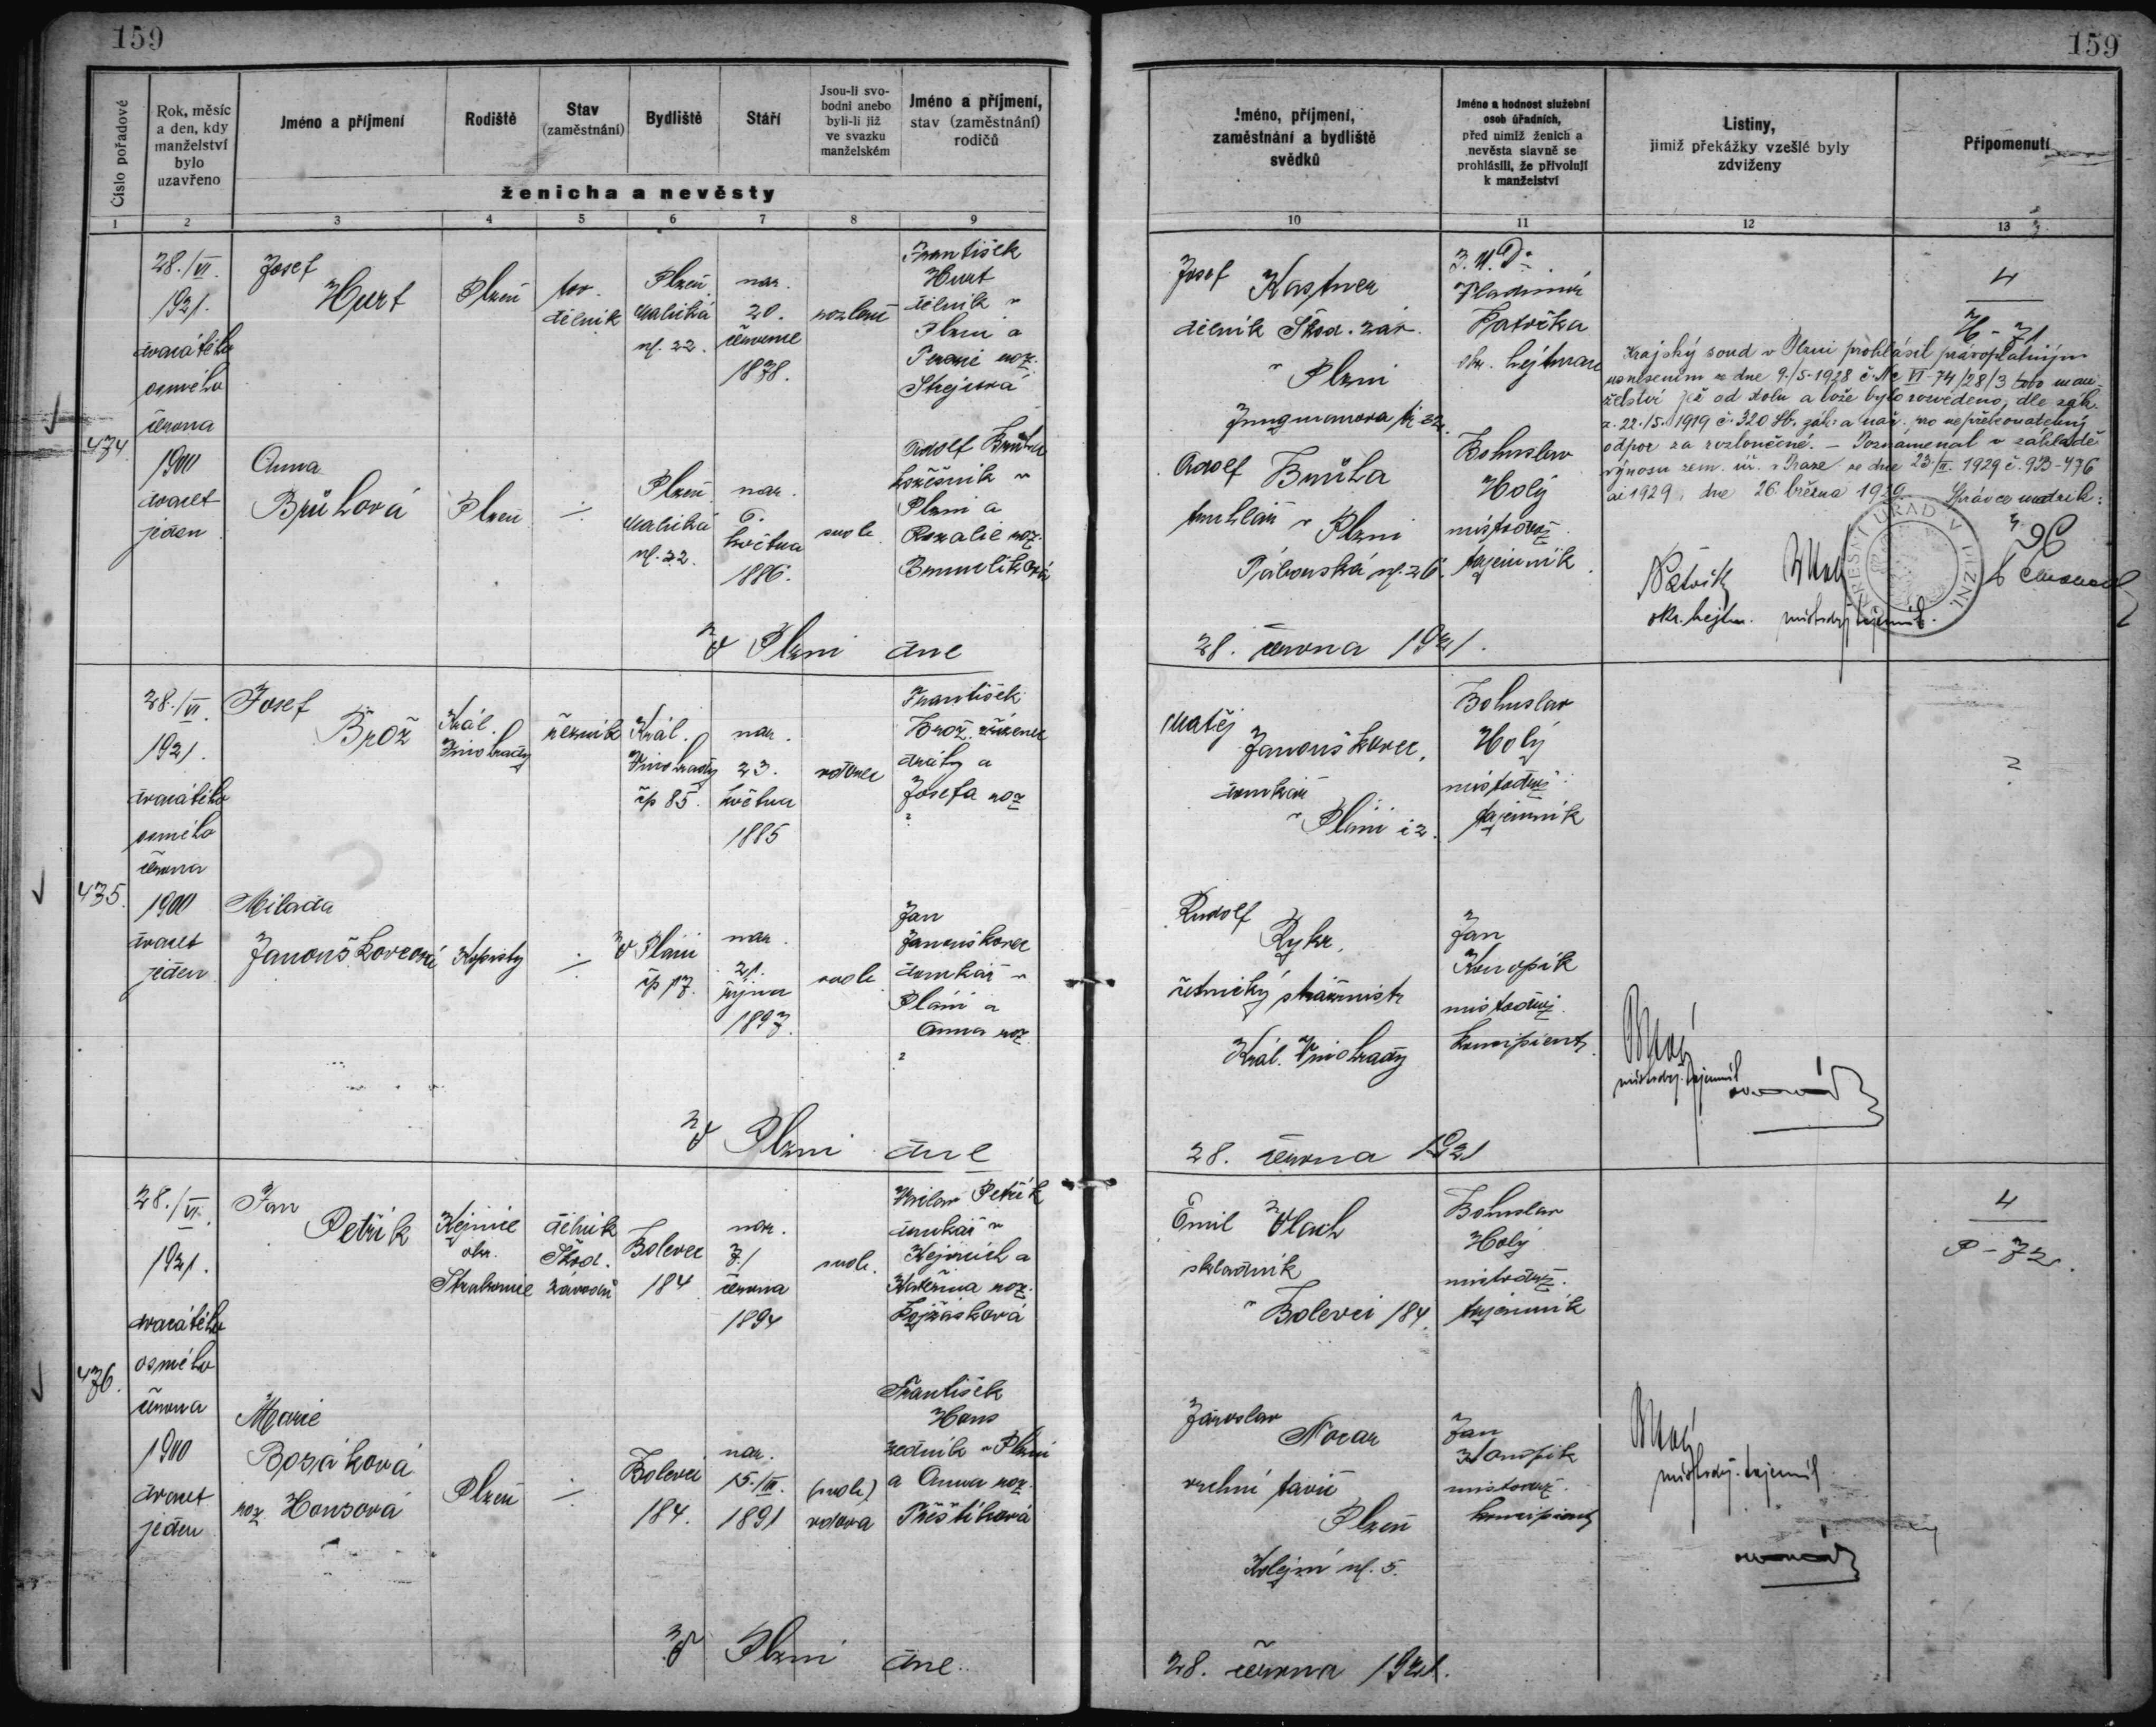 159
159
Číslo pořadové
Rok, měsíc
a den, kdy
manželství
bylo
uzavřeno
Jméno a příjmení
Rodiště
Stav
(zaměstnání)
Bydliště
Stáří
Jsou-li svo-
bodni anebo
byli-li již
ve svazku
manželském
Jméno a příjmení,
stav (zaměstnání)
rodičů
ženicha a nevěsty
1 2 3 4 5 6 7 8 9
Jméno, příjmení,
zaměstnání a bydliště
svědků
Jméno a hodnost služební
osob úřadních,
před nimiž ženich a
nevěsta slavně se
prohlásili, že přivolují
k manželství
Listiny,
jimiž překážky vzešlé byly
zdviženy
Připomenutí
10 11 12 13
474
28./VI.
1921.
dvacátého
osmého
června
1900
dvacet
jeden
Josef
Hurt
Plzeň
dělník
Plzeň
Malická
ul. 22.
nar.
20.
července
1878.
František
Hurt
dělník v
Plzni a
roz.
Anna
Brůhová
Plzeň
Plzeň
Malická
ul. 22.
nar.
6.
května
1886.
svob.
Adolf Brůha
v
Plzni a
Rozalie roz.
Josef Kastner
dělník Škod. záv.
v Plzni
Adolf Brůha
truhlář v Plzni
J.U.Dr.
Vladimír
okr. hejtman
Bohuslav
Holý
místodrž.
tajemník
4
H-71
Krajský soud v Plzni prohlásil právoplatným
usnesením ze dne 9./5.1928 č. Nc VI-74/28/3 toto man-
želství jež od stolu a lože bylo rozvedeno, dle zák.
z. 22./5.1919 č. 320 Sb. zák. a nař. pro nepřekonatelný
odpor za rozloučené. – Poznamenal v základě
výnosu zem. úř. v Praze ze dne 23./II. 1929 č. 933-476
ai 1929, dne 26. března 1929. Správce matrik:
okr. hejtm.
místodrž. tajemník.
V Plzni dne
28. června 1921.
435.
28./VI.
1921.
dvacátého
osmého
června
1900
dvacet
jeden
Josef
Brož
Král.
Vinohrady
řezník
Král.
Vinohrady
čp 85.
nar.
23.
května
1885
vdovec
František
Brož, zřízenec
dráhy a
Josefa roz
?
Milada
Janouškovcová
Kopisty
V Pláni
čp 17.
nar.
21.
října
1897.
svob.
Jan
Janouškovec
domkář v
Pláni a
Anna roz
?
Matěj
Janouškovec,
domkář
v Pláni
Bohuslav
Holý
místodrž.
tajemník
Rudolf
Rykr,
četnický strážmistr
Král. Vinohrady
Jan
Konopík
místodrž.
koncipient
?
místodrž. tajemník
V Plzni dne
28. června 1921
476.
28./VI.
1921.
dvacátého
osmého
června
1900
dvacet
jeden
Jan
Petřík
okr.
Strakonice
dělník
Škod.
závodů
Bolevec
184
nar.
7./
června
1894
svob.
Petřík
domkář v
a
Kateřina roz.
Marie
Bosáková
roz. Honsová
Plzeň
Bolevec
184.
nar.
15./III.
1891
(svob.)
vdova
František
Hons
zedník v Plzni
a Anna roz.
Přeštíková
Emil Vlach
skladník
v Bolevci 184.
Bohuslav
Holý
místodrž.
tajemník
4
P-72.
Jaroslav
Nocar
vrchní tavič
Plzeň
Kolejní ul. 5.
Jan
Konopík
místodrž.
koncipient
místodrž. tajemník
V Plzni dne
28. června 1921.